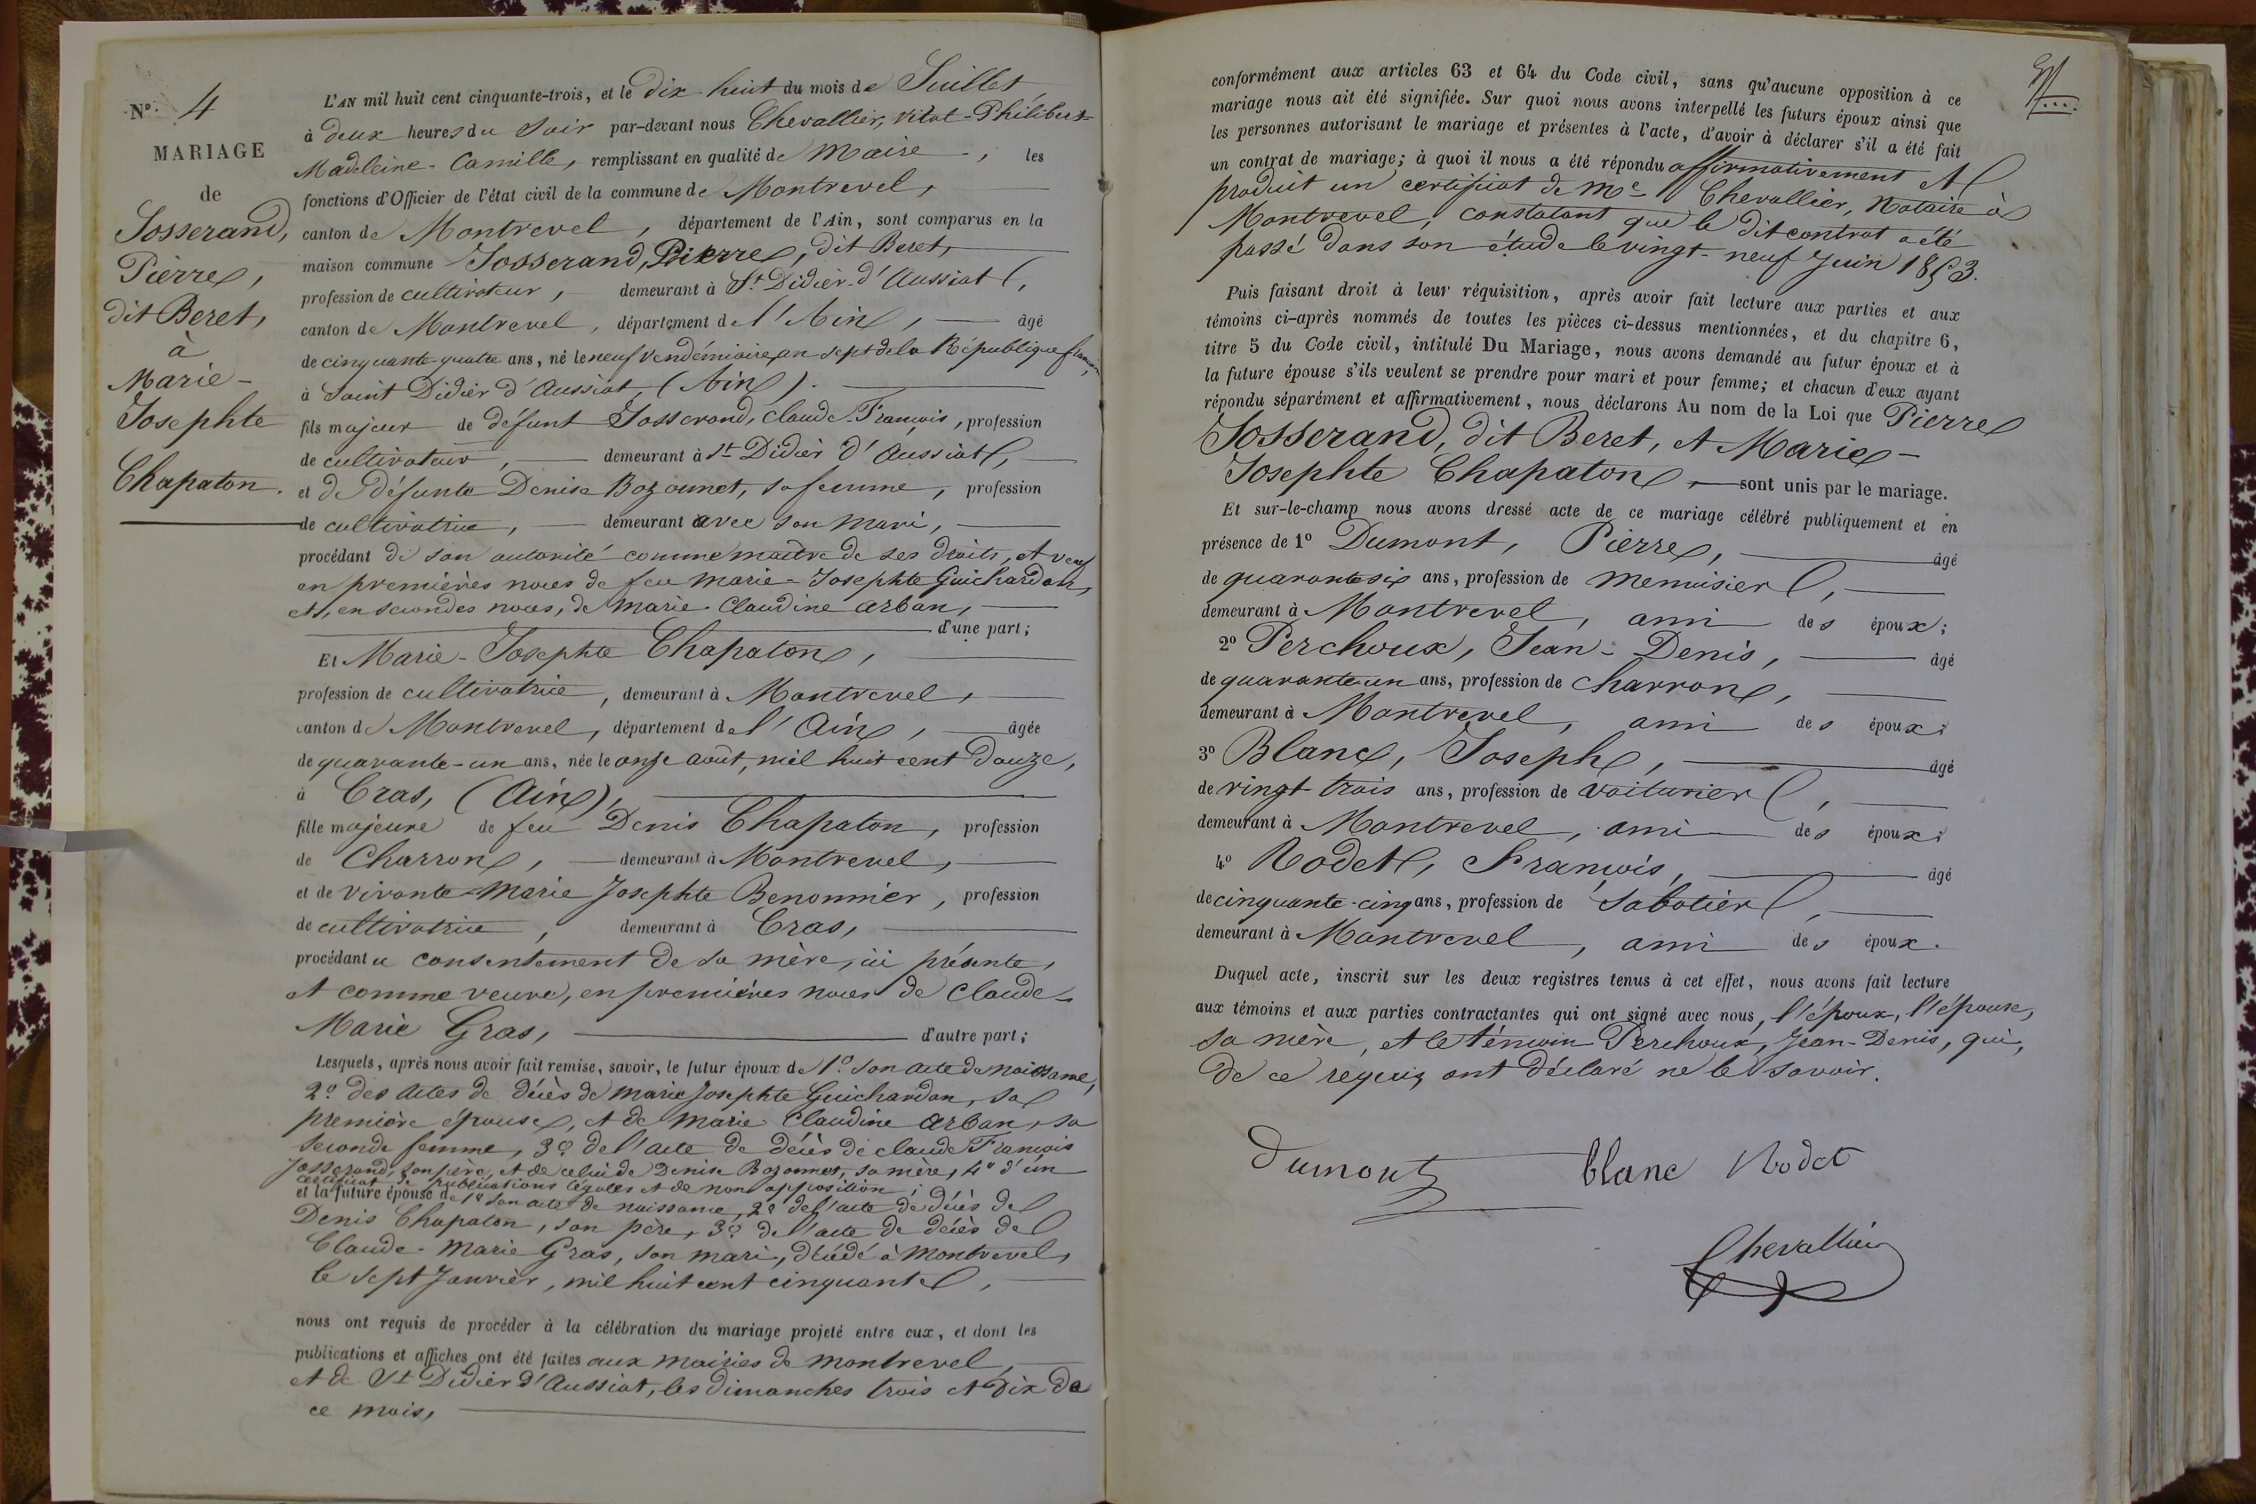 N° 4
MARIAGE
de
Josserand,
Pierre,
dit Beret,
à
Marie-
Josephte
Chapaton.
L'AN mil huit cent cinquante-trois, et le dix huit du mois de Juillet,
à deux heures du soir par-devant nous Chevallier, Vital-Philibert-
Madeleine-Camille, remplissant en qualité de Maire, les
fonctions d'Officier de l'état civil de la commune de Montrevel,
canton de Montrevel, département de l'Ain, sont comparus en la
maison commune Josserand, Pierre, dit Beret,
profession de cultivateur, demeurant à St Didier-d'Aussiat,
canton de Montrevel, département de l'Ain, âgé
de cinquante-quatre ans, né le neuf Vendémiaire an sept de la République
à Saint Didier d'Aussiat, (Ain).
fils majeur de défunt Josserand, Claude-François, profession
de cultivateur, demeurant à St Didier d'Aussiat,
et de défunte Denise Bozonnet, sa femme, profession
de cultivatrice, demeurant avec son mari,
procédant de son autorité comme maître de ses droits, et veuf
en premières noces de feu Marie-Josephte Guichardon,
et, en secondes noces, de Marie-Claudine Arban,
d'une part;
Et Marie-Josephte Chapaton,
profession de cultivatrice, demeurant à Montrevel,
canton de Montrevel, département de l'Ain, âgée
de quarante-un ans, née le onze août, mil huit cent douze,
à Cras, (Ain),
fille majeure de feu Denis Chapaton, profession
de Charron, demeurant à Montrevel,
et de vivante Marie Josephte Benonnier, profession
de cultivatrice, demeurant à Cras,
procédant u consentement de sa mère, ici présente,
et comme veuve, en premières noces de Claude-
Marie Gras, d'autre part;
Lesquels, après nous avoir fait remise, savoir, le futur époux de 1° son acte de naissance,
2° des actes de décès de Marie Josephte Guichardon, sa
première épouse, et de Marie Claudine Arban, sa
seconde femme, 3° de l'acte de décès de Claude François
Josserand, son père, et de celui de Denise Bozonnet, sa mère, 4° d'un
certificat de publications légales et de non opposition;
et la future épouse de 1° son acte de naissance, 2° de l'acte de décès de
Denis Chapaton, son père, 3° de l'acte de décès de
Claude-Marie Gras, son mari, décédé à Montrevel,
le sept Janvier, mil huit cent cinquante,
nous ont requis de procéder à la célébration du mariage projeté entre eux, et dont les
publications et affiches ont été faites aux mairies de Montrevel
et de St Didier d'Aussiat, les dimanches trois et dix de
ce mois,
conformément aux articles 63 et 64 du Code civil, sans qu'aucune opposition à ce
mariage nous ait été signifiée. Sur quoi nous avons interpellé les futurs époux ainsi que
les personnes autorisant le mariage et présentes à l'acte, d'avoir à déclarer s'il a été fait
un contrat de mariage; à quoi il nous a été répondu affirmativement et
produit un certificat de Me Chevallier, Notaire à
Montrevel, constatant que le dit contrat a été
passé dans son étude le vingt-neuf Juin 1853.
Puis faisant droit à leur réquisition, après avoir fait lecture aux parties et aux
témoins ci-après nommés de toutes les pièces ci-dessus mentionnées, et du chapitre 6,
titre 5 du Code civil, intitulé Du Mariage, nous avons demandé au futur époux et à
la future épouse s'ils veulent se prendre pour mari et pour femme; et chacun d'eux ayant
répondu séparément et affirmativement, nous déclarons Au nom de la Loi que Pierre
Josserand, dit Beret, et Marie-
Josephte Chapaton, sont unis par le mariage.
Et sur-le-champ nous avons dressé acte de ce mariage célébré publiquement et en
présence de 1° Dumont, Pierre, âgé
de quarante six ans, profession de menuisier,
demeurant à Montrevel, ami des époux;
2° Perchoux, Jean-Denis, âgé
de quarante-un ans, profession de charron,
demeurant à Montrevel, ami des époux;
3° Blanc, Joseph, âgé
de vingt trois ans, profession de voiturier,
demeurant à Montrevel, ami des époux;
4° Rodet, François, âgé
de cinquante-cinq ans, profession de Sabotier,
demeurant à Montrevel, ami des époux.
Duquel acte, inscrit sur les deux registres tenus à cet effet, nous avons fait lecture
aux témoins et aux parties contractantes qui ont signé avec nous, l'époux, l'épouse,
sa mère, et le témoin Perchoux, Jean-Denis, qui,
de ce requis, ont déclaré ne le savoir.
Dumont blanc Rodet
Chevallier